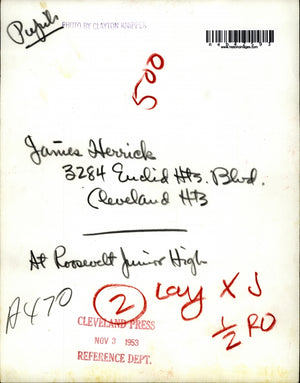 Pupils
PHOTO BY CLAYTON KNIPPER
500
James Herrick
3284 Euclid Hts. Blvd.
Cleveland Hts
At Roosevelt Junior High
A470
2 Lay X J
1/2 RO
CLEVELAND PRESS
NOV 3 1953
REFERENCE DEPT.